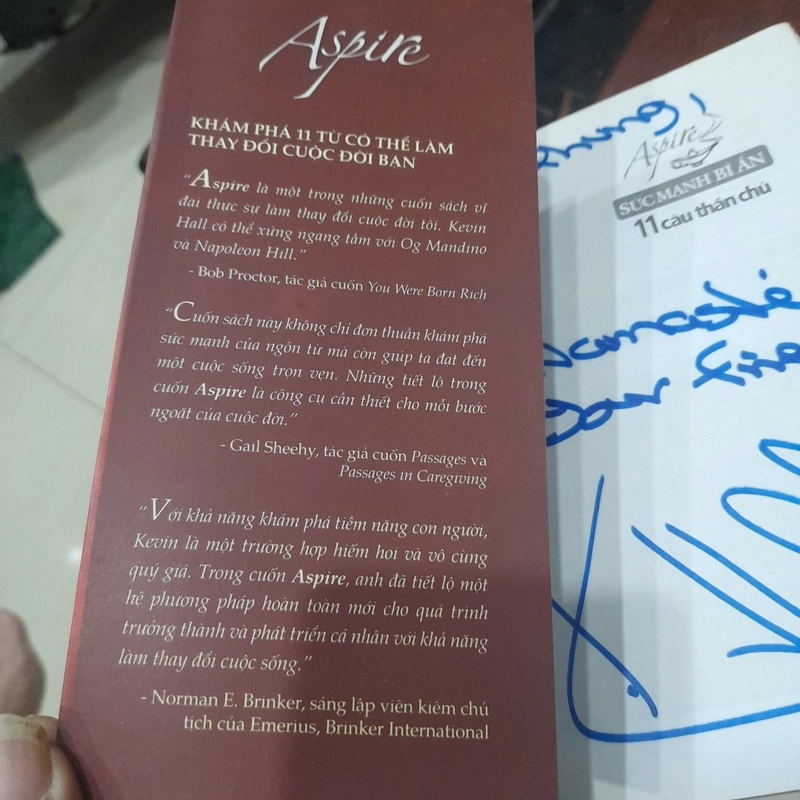 Aspire
KHÁM PHÁ 11 TỪ CÓ THỂ LÀM
THAY ĐỔI CUỘC ĐỜI BẠN
“Aspire là một trong những cuốn sách vĩ
đại thực sự làm thay đổi cuộc đời tôi. Kevin
Hall có thể xứng ngang tầm với Og Mandino
và Napoleon Hill.”
- Bob Proctor, tác giả cuốn You Were Born Rich
“Cuốn sách này không chỉ đơn thuần khám phá
sức mạnh của ngôn từ mà còn giúp ta đạt đến
một cuộc sống trọn vẹn. Những tiết lộ trong
cuốn Aspire là công cụ cần thiết cho mỗi bước
ngoặt của cuộc đời.”
- Gail Sheehy, tác giả cuốn Passages và
Passages in Caregiving
“Với khả năng khám phá tiềm năng con người,
Kevin là một trường hợp hiếm hoi và vô cùng
quý giá. Trong cuốn Aspire, anh đã tiết lộ một
hệ phương pháp hoàn toàn mới cho quá trình
trưởng thành và phát triển cá nhân với khả năng
làm thay đổi cuộc sống.”
- Norman E. Brinker, sáng lập viên kiêm chủ
tịch của Emerius, Brinker International
Aspire
SỨC MẠNH BÍ ẨN
11 câu thần chú
Namasté
your